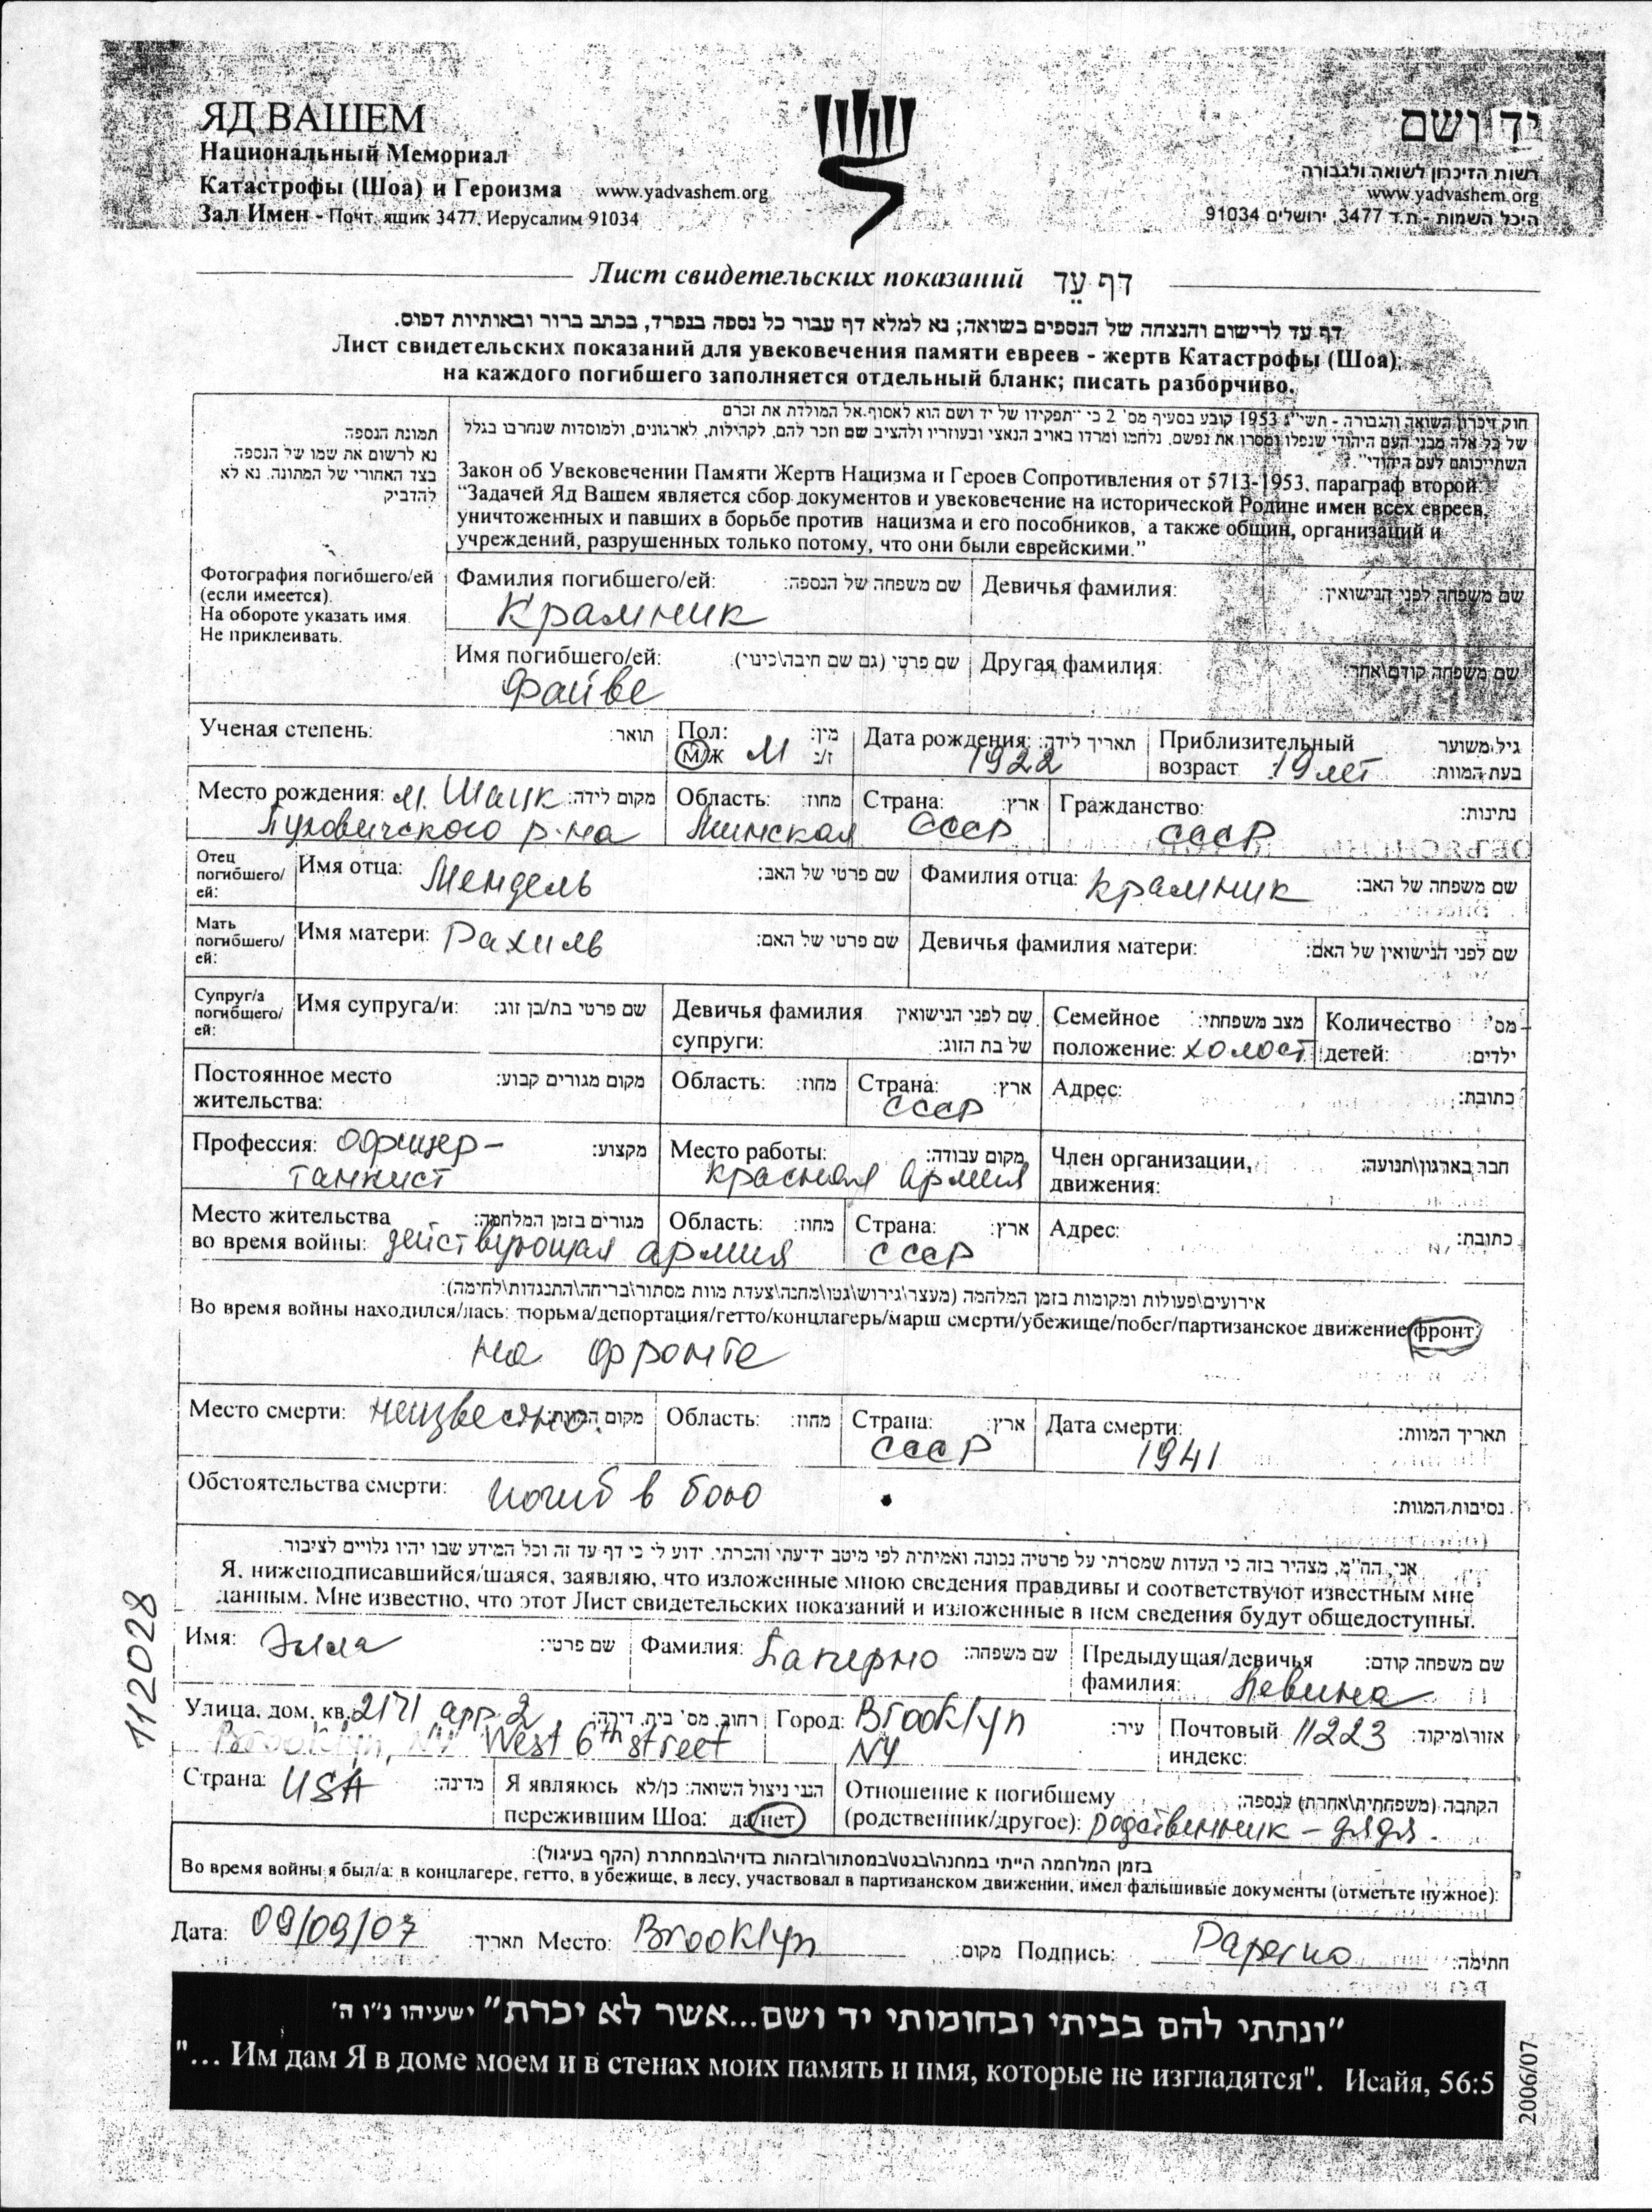 ЯД ВАШЕМ
Национальный Мемориал
Катастрофы (Шоа) и Героизма www.yadvashem.org
Зал Имен - Почт. ящик 3477, Иерусалим 91034
יד ושם
רשות הזיכרון לשואה ולגבורה
www.yadvashem.org
היכל השמות - ת.ד 3477, ירושלים 91034
Лист свидетельских показаний דף עד
דף עד לרישום והנצחה של הנספים בשואה; נא למלא דף עבור כל נספה בנפרד, בכתב ברור ובאותיות דפוס.
Лист свидетельских показаний для увековечения памяти евреев - жертв Катастрофы (Шоа);
на каждого погибшего заполняется отдельный бланк; писать разборчиво.
תמונת הנספה
נא לרשום את שמו של הנספה
בצד האחורי של התמונה. נא לא
להדביק
Фотография погибшего/ей
(если имеется).
На обороте указать имя.
Не приклеивать.
חוק זיכרון השואה והגבורה - תשי"ג 1953 קובע בסעיף מס' 2 כי "תפקידו של יד ושם הוא לאסוף אל המולדת את זכרם
של כל אלה מבני העם היהודי שנפלו ומסרו את נפשם, נלחמו ומרדו באויב הנאצי ובעוזריו ולהציב שם וזכר להם, לקהילות, לארגונים, ולמוסדות שנחרבו בגלל
השתייכותם לעם היהודי".
Закон об Увековечении Памяти Жертв Нацизма и Героев Сопротивления от 5713-1953, параграф второй:
"Задачей Яд Вашем является сбор документов и увековечение на исторической Родине имен всех евреев,
уничтоженных и павших в борьбе против нацизма и его пособников, а также общин, организаций и
учреждений, разрушенных только потому, что они были еврейскими."
Фамилия погибшего/ей: שם משפחה של הנספה: Девичья фамилия: שם משפחה לפני הנישואין:
Крамник
Имя погибшего/ей: שם פרטי (גם שם חיבה\כינוי): Другая фамилия: שם משפחה קודם\אחר:
Файве
Ученая степень: תואר: Пол: מין: Дата рождения: תאריך לידה: Приблизительный גיל משוער
м/ж М ז/נ 1922 возраст 19 лет בעת המוות:
Место рождения: м. Шацк מקום לידה: Область: מחוז: Страна: ארץ: Гражданство: נתינות:
Пуховичского р-на Минская СССР СССР
Отец
погибшего/
ей:
Имя отца: Мендель שם פרטי של האב: Фамилия отца: Крамник שם משפחה של האב:
Мать
погибшего/
ей:
Имя матери: Рахиль שם פרטי של האם: Девичья фамилия матери: שם לפני הנישואין של האם:
Супруг/а
погибшего/
ей:
Имя супруга/и: שם פרטי בת/בן זוג: Девичья фамилия שם לפני הנישואין Семейное מצב משפחתי: Количество מס'
супруги: של בת הזוג: положение: холост детей: ילדים:
Постоянное место מקום מגורים קבוע: Область: מחוז: Страна: ארץ: Адрес: כתובת:
жительства: СССР
Профессия: офицер- מקצוע: Место работы: מקום עבודה: Член организации, חבר בארגון\תנועה:
танкист Красная Армия движения:
Место жительства מגורים בזמן המלחמה: Область: מחוז: Страна: ארץ: Адрес: כתובת:
во время войны: действующая армия СССР
אירועים\פעולות ומקומות בזמן המלחמה (מעצר\גירוש\גטו\מחנה\צעדת מוות מסתור\בריחה\התנגדות\לחימה):
Во время войны находился/лась: тюрьма/депортация/гетто/концлагерь/марш смерти/убежище/побег/партизанское движение/фронт:
на фронте
Место смерти: неизвестно. מקום המוות: Область: מחוז: Страна: ארץ: Дата смерти: תאריך המוות:
СССР 1941
Обстоятельства смерти: погиб в бою נסיבות המוות:
אני, הח"מ, מצהיר בזה כי העדות שמסרתי על פרטיה נכונה ואמיתית לפי מיטב ידיעתי והכרתי. ידוע לי כי דף עד זה וכל המידע שבו יהיו גלויים לציבור.
Я, нижеподписавшийся/шаяся, заявляю, что изложенные мною сведения правдивы и соответствуют известным мне
данным. Мне известно, что этот Лист свидетельских показаний и изложенные в нем сведения будут общедоступны.
Имя: Элла שם פרטי: Фамилия: Паперно שם משפחה: Предыдущая/девичья שם משפחה קודם:
фамилия: Левина
Улица, дом, кв. 2171 app. 2 רחוב, מס' בית, דירה: Город: Brooklyn עיר: Почтовый 11223 אזור\מיקוד:
Brooklyn, NY West 6th street NY индекс:
Страна: USA מדינה: Я являюсь הנני ניצול השואה: כן/לא Отношение к погибшему הקרבה (משפחתית\אחרת) לנספה:
пережившим Шоа: да/нет (родственник/другое): родственник - дядя.
בזמן המלחמה הייתי במחנה\בגטו\במסתור\בזהות בדויה\במחתרת (הקף בעיגול):
Во время войны я был/а: в концлагере, гетто, в убежище, в лесу, участвовал в партизанском движении, имел фальшивые документы (отметьте нужное):
Дата: 09/09/07 תאריך: Место: Brooklyn מקום: Подпись: Paperno חתימה:
"ונתתי להם בביתי ובחומותי יד ושם...אשר לא יכרת" ישעיהו נ"ו ה'
"... Им дам Я в доме моем и в стенах моих память и имя, которые не изгладятся". Исайя, 56:5
112028
2006/07